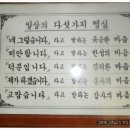 일상의 다섯가지 명심
「네 그렇습니다」 라고 말하는 유순한 마음
「미안합니다」 라고 말하는 반성의 마음
「덕분입니다」 라고 말하는 겸허한 마음
「제가 하겠습니다」 라고 말하는 봉사의 마음
「고맙습니다」 라고 말하는 감사의 마음